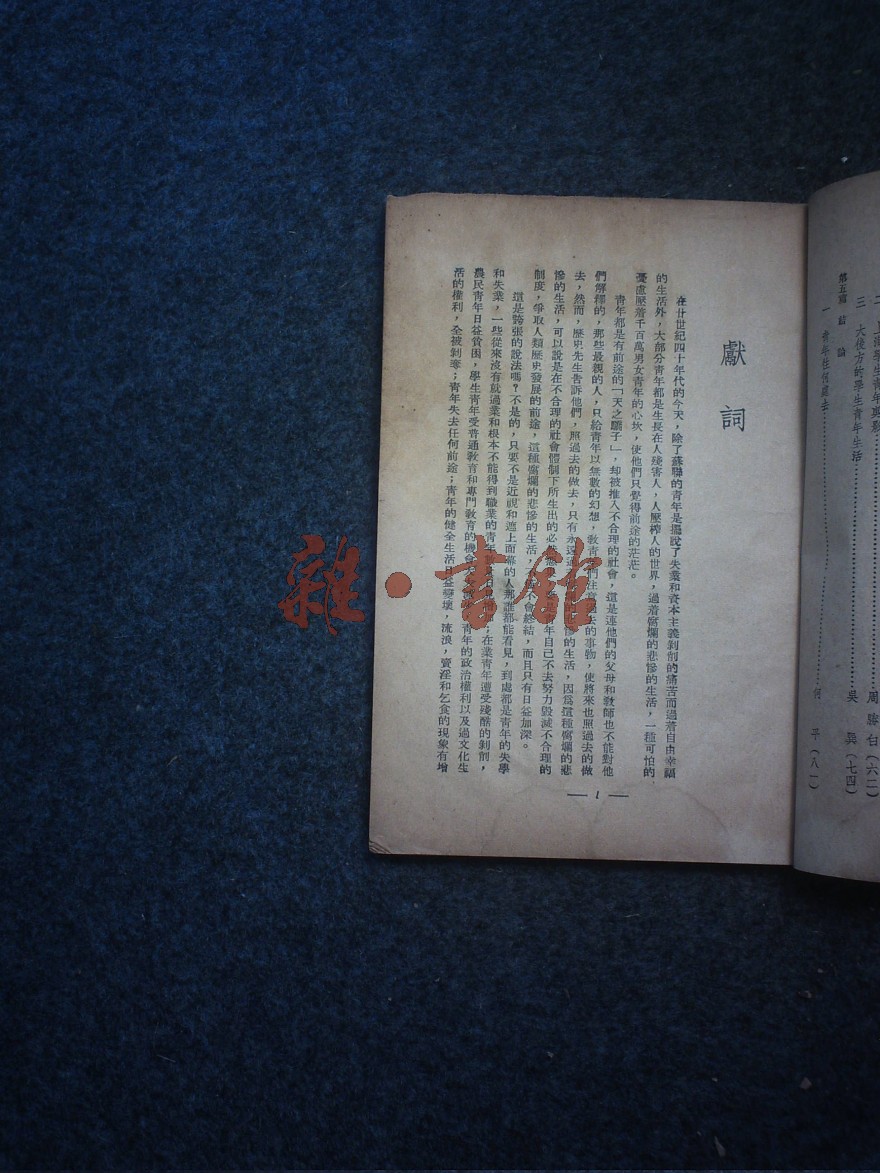 二
三 大後方的學生青年生活
第五篇 結論
一 青年往何處去
周 (六二)
吳 巽 (七四)
何 干 (八一)
獻詞
在廿世紀四十年代的今天，除了蘇聯的青年是擺脫了失業和資本主義剝削的痛苦而過着自由幸福
的生活外，大部分青年都是生長在人殘害人，人壓榨人的世界，過着腐爛的悲慘的生活，一種可怕的
憂慮壓着千百萬男女青年的心坎，使他們只覺得前途的茫茫。
青年都是有前途的「天之驕子」，却被推入不合理的社會，這是連他們的父母和教師也不能對他
們解釋的，那些最親的人，只給青年以無數的幻想，教青 們注 去的事物，使將來也照過去的做
去，然而，歷史先生告訴他們，照過去的做去，只有永遠過 慘的生活，因爲這種腐爛的悲
慘的生活，可以說是在不合理的社會體制下所生出的必 年自己不去努力毀滅不合理的
制度，爭取人類歷史發展的前途，這種腐爛的悲慘的生活，不 不會終結，而且只有日益加深。
這是誇張的說法嗎？不是的，只要不是近視和遮上面幕的人那誰都能看見，到處都是青年的失學
和失業，一些從來沒有就過業和根本不能得到職業的青年 ，在業青年遭受殘酷的剝削，
農民青年日益貧困，學生青年受普通教育和專門教育的機會 青年的政治權利以及過文化生
活的權利，全被剝奪；青年失去任何前途；青年的健全生活日益變壞，流浪，賣淫和乞食的現象有增
— 1 —
雜·書館